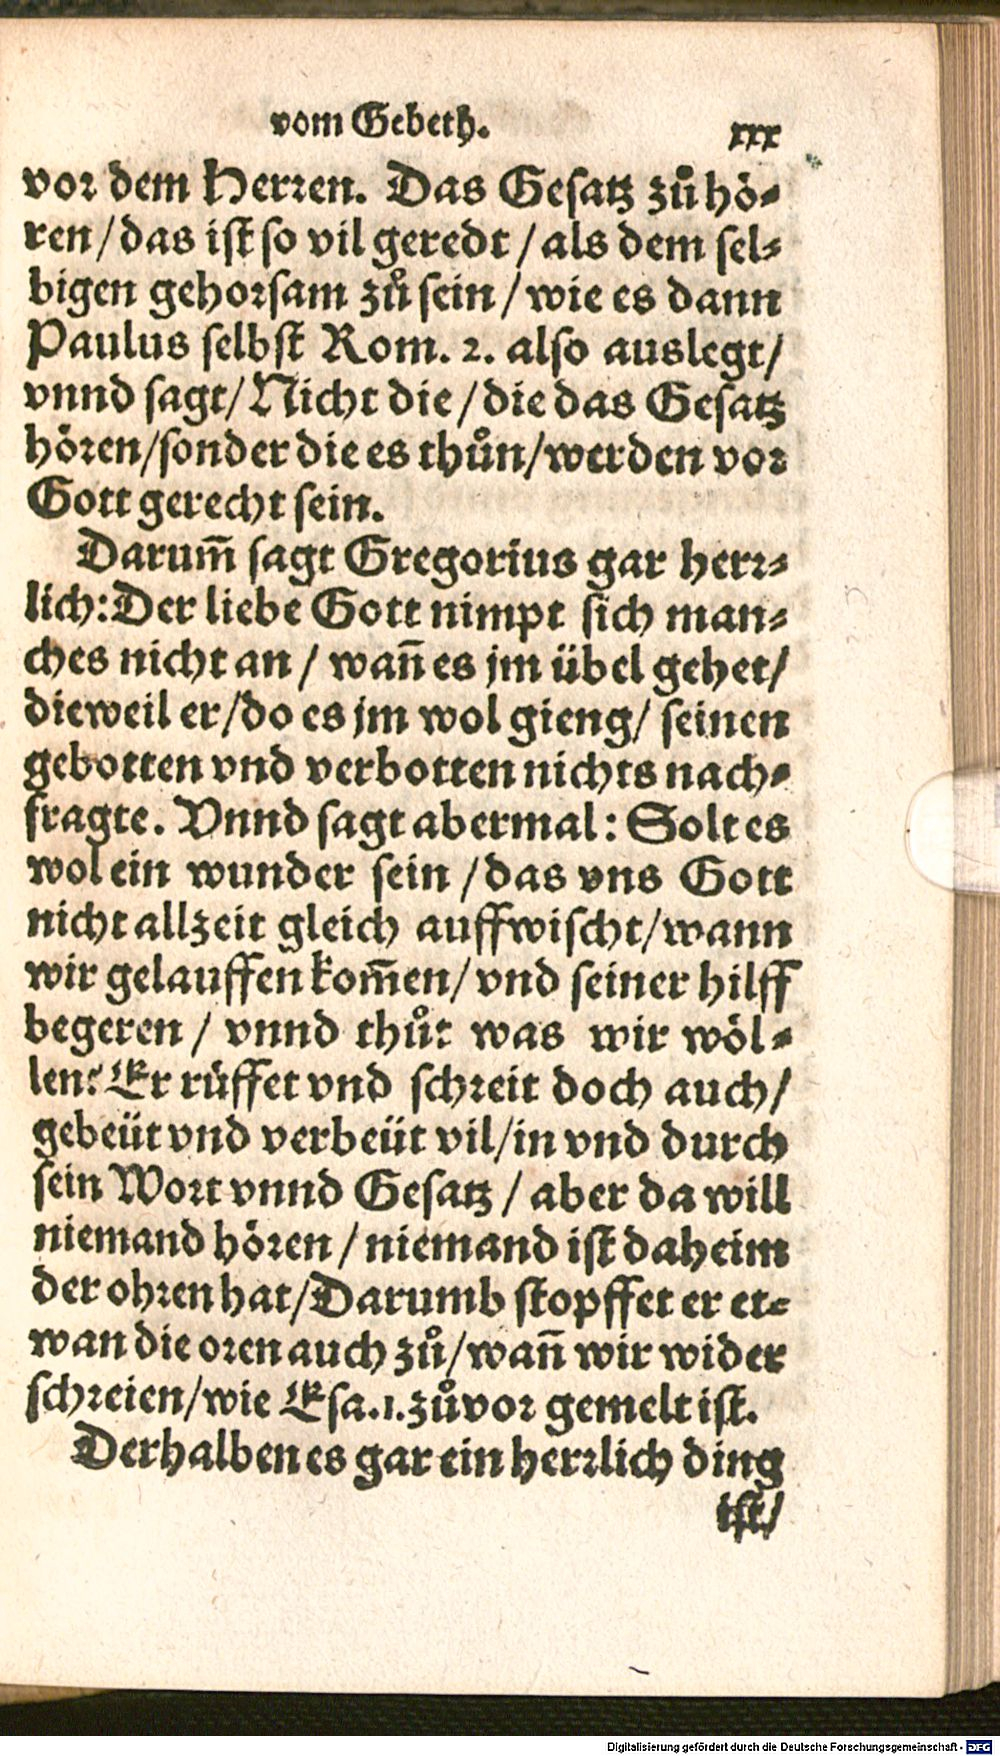 vom Gebeth.
xxx
vor dem Herren. Das Gesatz zů hö⸗
ren/das ist so vil geredt/als dem sel⸗
bigen gehorsam zů sein/wie es dann
Paulus selbst Rom. 2. also auslegt/
vnnd sagt/Nicht die/die das Gesatz
hören/sonder die es thůn/werden vor
Gott gerecht sein.
Darum̄ sagt Gregorius gar herr⸗
lich:Der liebe Gott nimpt sich man⸗
ches nicht an/wan̄ es jm übel gehet/
dieweil er/do es jm wol gieng/seinen
gebotten vnd verbotten nichts nach⸗
fragte. Vnnd sagt abermal: Solt es
wol ein wunder sein/das vns Gott
nicht allzeit gleich auffwischt/wann
wir gelauffen kom̄en/vnd seiner hilff
begeren/vnnd thůt was wir wöl⸗
len? Er rüffet vnd schreit doch auch/
gebeüt vnd verbeüt vil/in vnd durch
sein Wort vnnd Gesatz/aber da will
niemand hören/niemand ist daheim
der ohren hat/Darumb stopffet er et⸗
wan die oren auch zů/wan̄ wir wider
schreien/wie Esa.1.zůvor gemelt ist.
Derhalben es gar ein herrlich ding
ist/
Digitalisierung gefördert durch die Deutsche Forschungsgemeinschaft - DFG